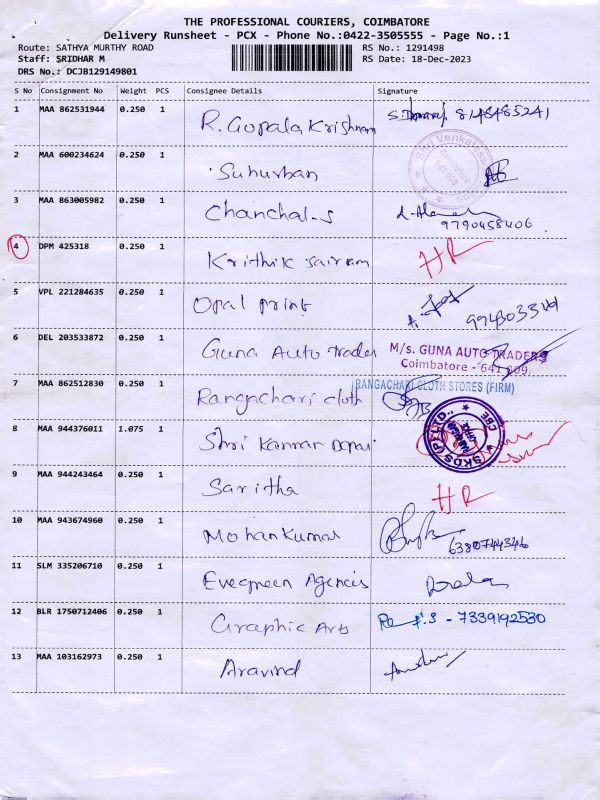 THE PROFESSIONAL COURIERS, COIMBATORE
Delivery Runsheet - PCX - Phone No.:0422-3505555 - Page No.:1
Route: SATHYA MURTHY ROAD RS No.: 1291498
Staff: SRIDHAR M RS Date: 18-Dec-2023
DRS No.: DCJB129149801
S No Consignment No Weight PCS Consignee Details Signature
1 MAA 862531944 0.250 1 R. Gopala Krishnan 8148485241
2 MAA 600234624 0.250 1 Suburban
3 MAA 863005982 0.250 1 Chanchal-s 9790458406
4 DPM 425318 0.250 1 Krithik Sairam HR
5 VPL 221284635 0.250 1 Opal print
6 DEL 203533872 0.250 1 Guna Auto Trades M/s. GUNA AUTO TRADERS
Coimbatore - 641 009.
RANGACHARI CLOTH STORES (FIRM)
7 MAA 862512830 0.250 1 Rangachari cloth
8 MAA 944376011 1.075 1 Shri Kannan
9 MAA 944243464 0.250 1 Saritha HR
10 MAA 943674960 0.250 1 Mohan Kumar 6380744346
11 SLM 335206710 0.250 1 Evegreen Agencis
12 BLR 1750712406 0.250 1 Graphic Arts 7339192530
13 MAA 103162973 0.250 1 Aravind